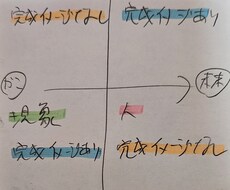 完成イメージなし 完成イメージあり
かこ 未来
現象 人
完成イメージあり 完成イメージなし